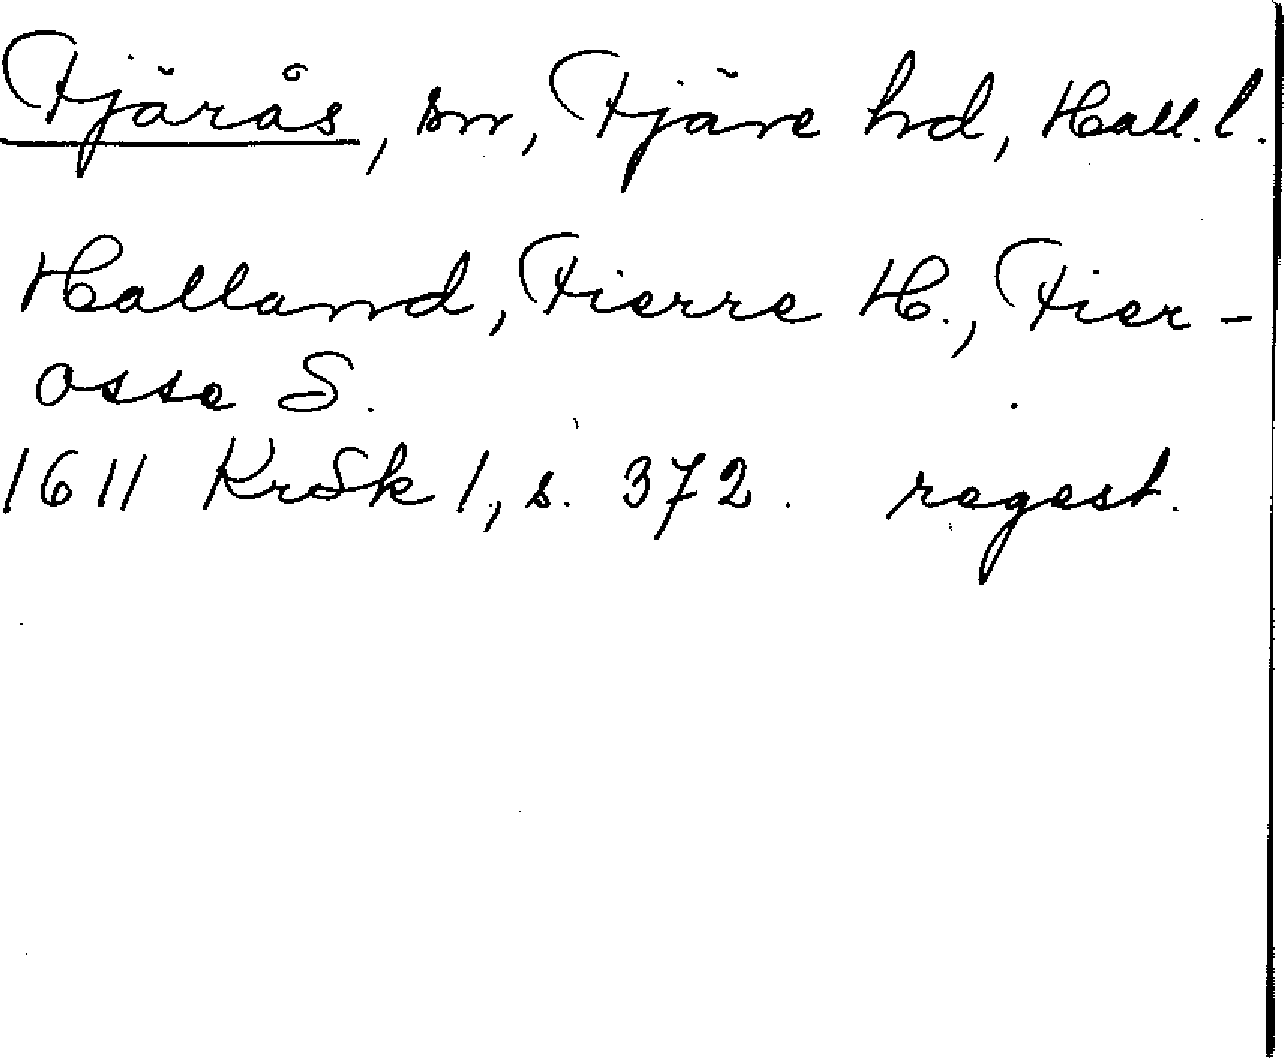 Fjärås, sn, Fjäre hd, Hall. l.
Halland, Fierre H., Fier-
osse S.
1611 KrSk 1, s. 372. regest.